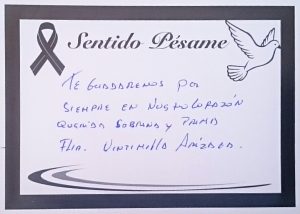 Sentido Pésame
Te guardaremos por
siempre en nuestro corazón
querida sobrina y prima
Flia. Vintimilla Arízaga.